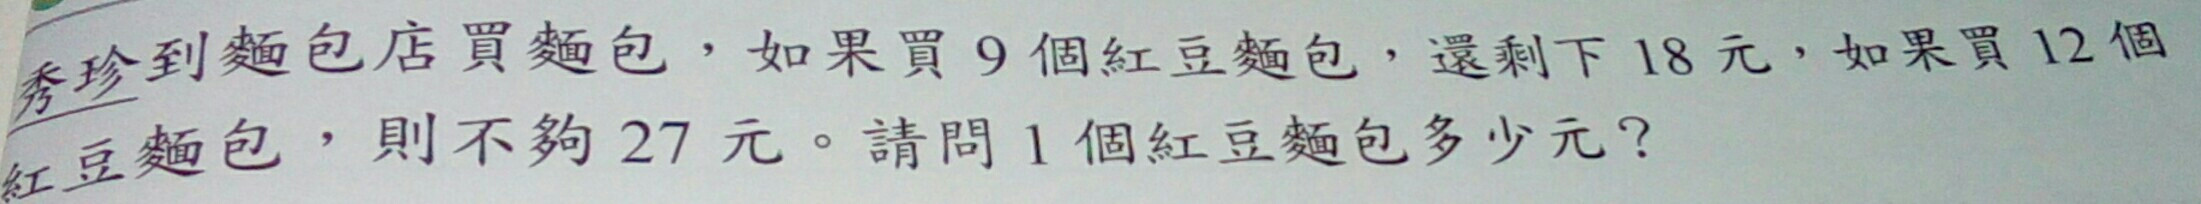 秀珍到麵包店買麵包，如果買 9 個紅豆麵包，還剩下 18 元，如果買 12 個
紅豆麵包，則不夠 27 元。請問 1 個紅豆麵包多少元？